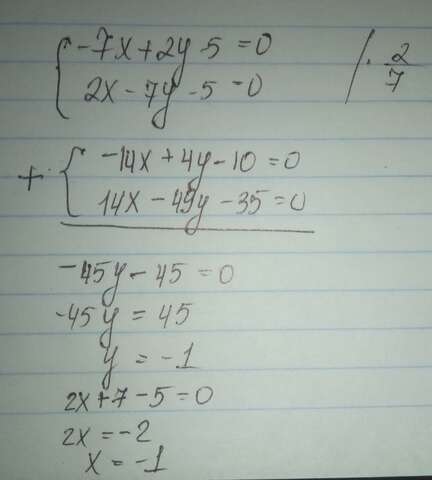 -7x+2y-5=0 /· 2/7
2x-7y-5=0
-14x+4y-10=0
+
14x-49y-35=0
-45y-45=0
-45y=45
y=-1
2x+7-5=0
2x=-2
x=-1